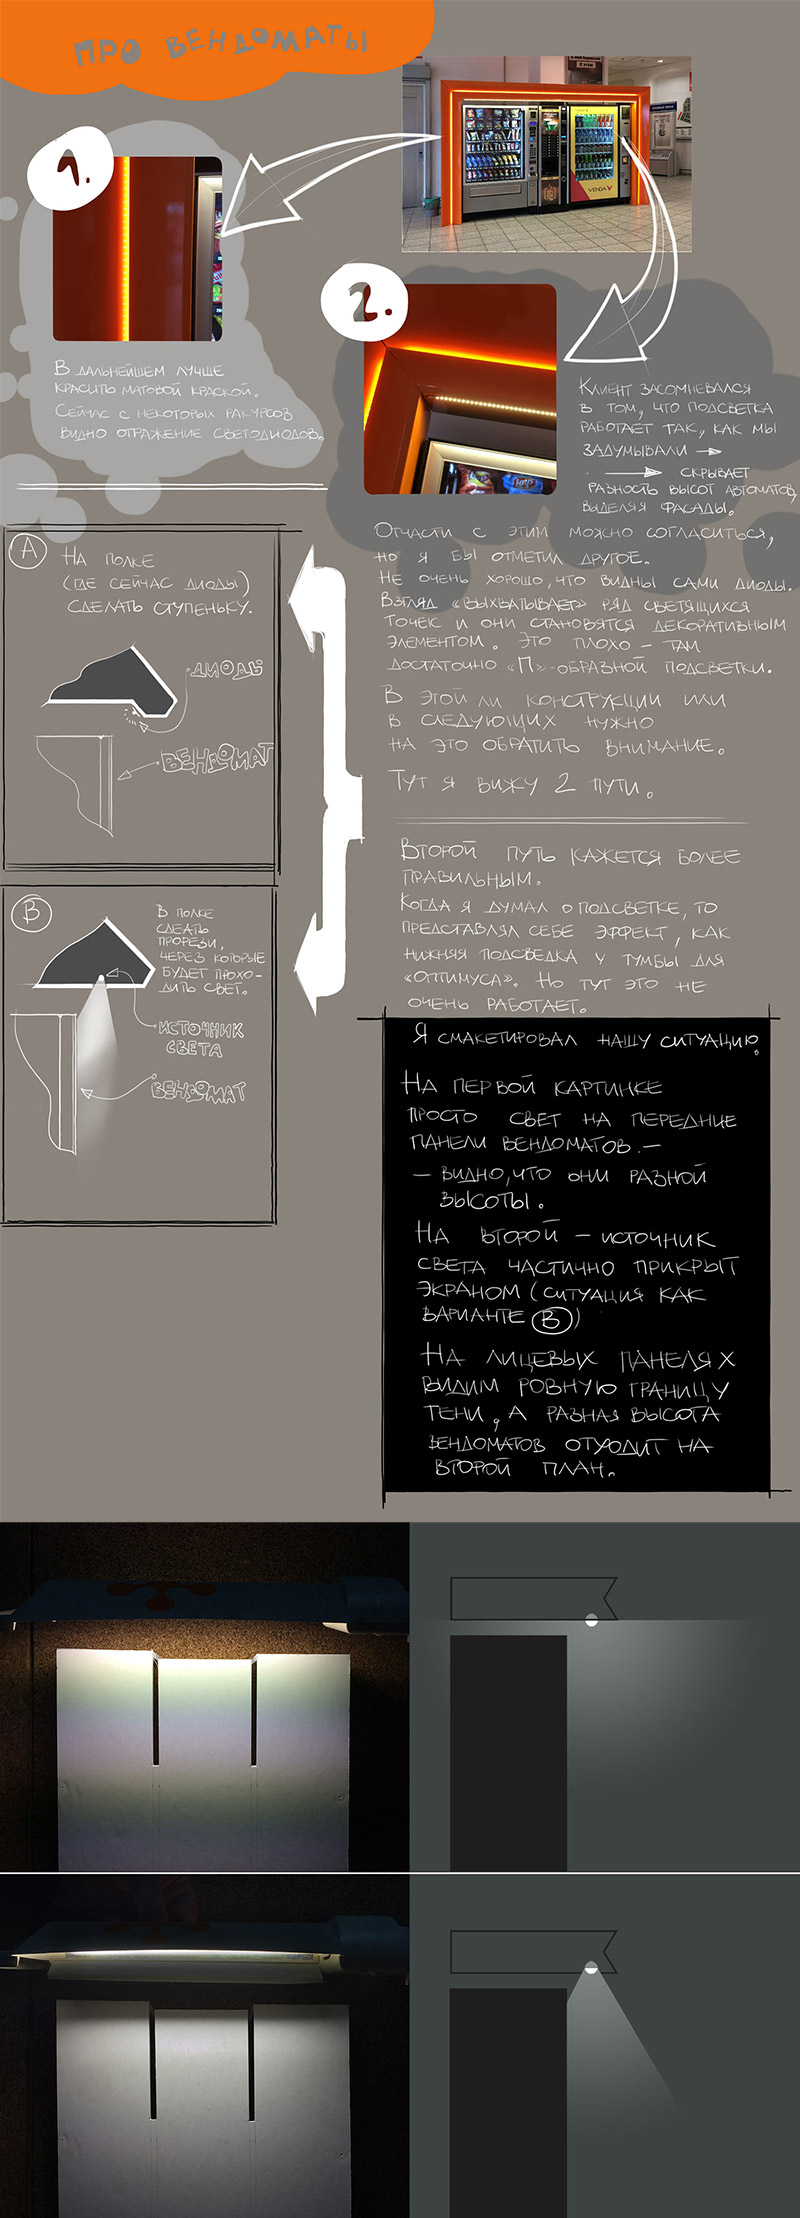 ПРО ВЕНДОМАТЫ
VENDA
1.
2.
В ДАЛЬНЕЙШЕМ ЛУЧШЕ
КРАСИТЬ МАТОВОЙ КРАСКОЙ.
СЕЙЧАС С НЕКОТОРЫХ РАКУРСОВ
ВИДНО ОТРАЖЕНИЕ СВЕТОДИОДОВ.
КЛИЕНТ ЗАСОМНЕВАЛСЯ
В ТОМ, ЧТО ПОДСВЕТКА
РАБОТАЕТ ТАК, КАК МЫ
ЗАДУМЫВАЛИ →
→ СКРЫВАЕТ
РАЗНОСТЬ ВЫСОТ АВТОМАТОВ,
ВЫДЕЛЯЯ ФАСАДЫ.
ОТЧАСТИ С ЭТИМ МОЖНО СОГЛАСИТЬСЯ,
НО Я БЫ ОТМЕТИЛ ДРУГОЕ.
НЕ ОЧЕНЬ ХОРОШО, ЧТО ВИДНЫ САМИ ДИОДЫ.
ВЗГЛЯД «ВЫХВАТЫВАЕТ» РЯД СВЕТЯЩИХСЯ
ТОЧЕК И ОНИ СТАНОВЯТСЯ ДЕКОРАТИВНЫМ
ЭЛЕМЕНТОМ. ЭТО ПЛОХО – ТАМ
ДОСТАТОЧНО «П»-ОБРАЗНОЙ ПОДСВЕТКИ.
В ЭТОЙ ЛИ КОНСТРУКЦИИ ИЛИ
В СЛЕДУЮЩИХ НУЖНО
НА ЭТО ОБРАТИТЬ ВНИМАНИЕ.
ТУТ Я ВИЖУ 2 ПУТИ.
A
НА ПОЛКЕ
(ГДЕ СЕЙЧАС ДИОДЫ)
СДЕЛАТЬ СТУПЕНЬКУ.
ДИОДЫ
ВЕНДОМАТ
B
В ПОЛКЕ
СДЕАТЬ
ПРОРЕЗИ,
ЧЕРЕЗ КОТОРЫЕ
БУДЕТ ПРОХО-
ДИТЬ СВЕТ.
ИСТОЧНИК
СВЕТА
ВЕНДОМАТ
ВТОРОЙ ПУТЬ КАЖЕТСЯ БОЛЕЕ
ПРАВИЛЬНЫМ.
КОГДА Я ДУМАЛ О ПОДСВЕТКЕ, ТО
ПРЕДСТАВЛЯЛ СЕБЕ ЭФФЕКТ, КАК
НИЖНЯЯ ПОДСВЕДКА У ТУМБЫ ДЛЯ
«ОПТИМУСА». НО ТУТ ЭТО НЕ
ОЧЕНЬ РАБОТАЕТ.
Я СМАКЕТИРОВАЛ НАШУ СИТУАЦИЮ.
НА ПЕРВОЙ КАРТИНКЕ
ПРОСТО СВЕТ НА ПЕРЕДНИЕ
ПАНЕЛИ ВЕНДОМАТОВ. –
– ВИДНО, ЧТО ОНИ РАЗНОЙ
ВЫСОТЫ.
НА ВТОРОЙ – ИСТОЧНИК
СВЕТА ЧАСТИЧНО ПРИКРЫТ
ЭКРАНОМ (СИТУАЦИЯ КАК
ВАРИАНТЕ B)
НА ЛИЦЕВЫХ ПАНЕЛЯХ
ВИДИМ РОВНУЮ ГРАНИЦУ
ТЕНИ, А РАЗНАЯ ВЫСОТА
ВЕНДОМАТОВ ОТУОДИТ НА
ВТОРОЙ ПЛАН.